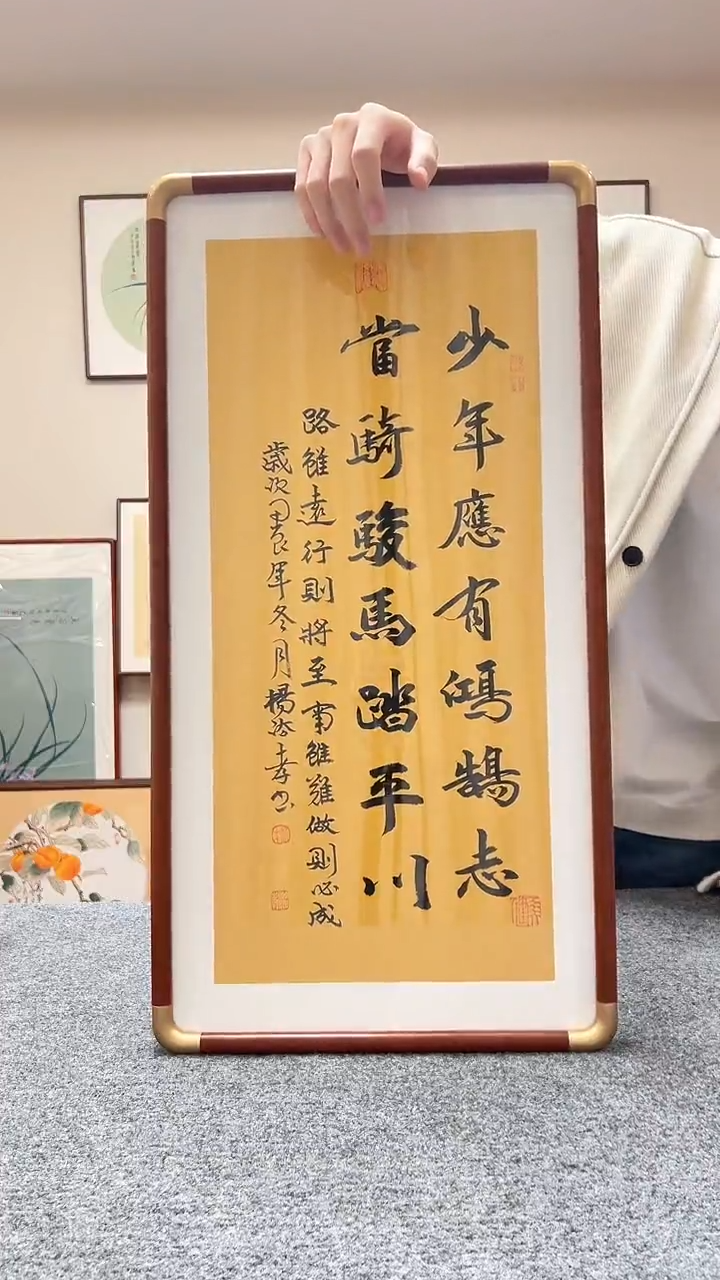 少年應有鴻鵠志
當騎駿馬踏平川
路雖遠行則將至事雖難做則必成
歲次年冬月楊書